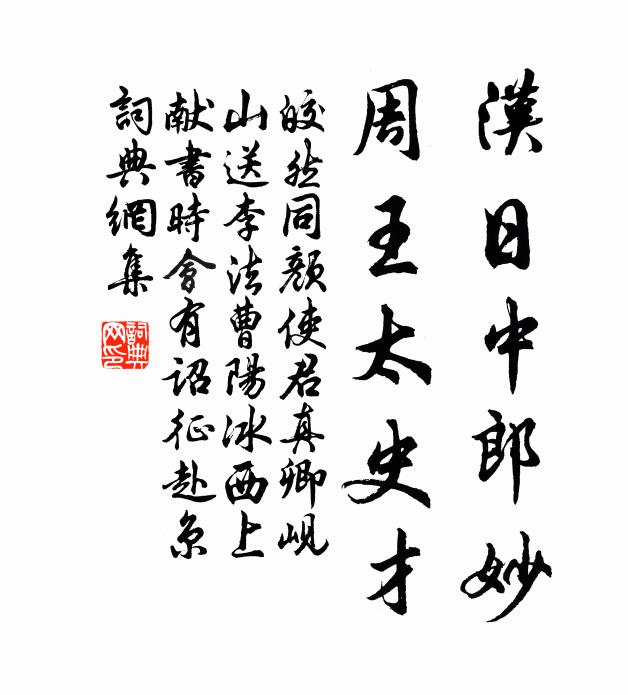 漢日中郎妙
周王太史才
皎然同顏使君真卿峴
山送李法曹陽冰西上
献書時會有詔征赴京
詞典網集
詞典
网印